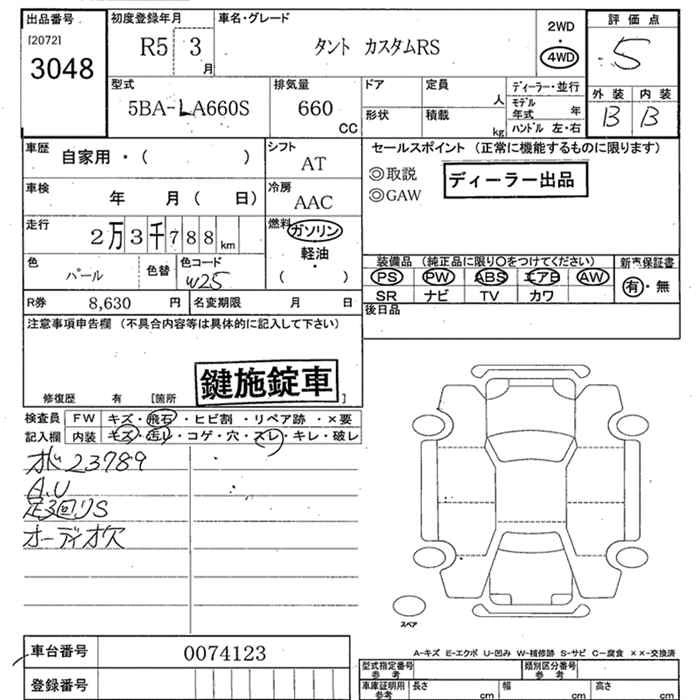 出品番号
[2072]
3048
初度登録年月
R5 3 月
車名・グレード
タント カスタムRS
2WD
・
4WD
評価点
5
外装 内装
B B
型式
5BA-LA660S
排気量
660
CC
ドア
定員
人
形状
積載
kg
ディーラー・並行
モデル
年式 年
ハンドル 左・右
車歴
自家用・( )
シフト
AT
車検
年 月( 日)
冷房
AAC
走行
2万3千788km
燃料
ガソリン
軽油
・
( )
色
パール
色替
色コード
W25
R券 8,630 円
名変期限 月 日
セールスポイント (正常に機能するものに限ります)
◎取説
◎GAW
ディーラー出品
装備品 (純正品に限り〇をつけてください)
PS PW ABS エアB AW
SR ナビ TV カワ
新車保証書
有・無
後日品
注意事項申告欄 (不具合内容等は具体的に記入して下さい)
鍵施錠車
修復歴 有 [箇所 ]
検査員
記入欄
FW キズ・飛石・ヒビ割・リペア跡・×要
内装 キズ・汚レ・コゲ・穴・スレ・キレ・破レ
オド23789
A.U
足3回りS
オーディオ欠
スペア
A-キズ E-エクボ U-凹み W-補修跡 S-サビ C-腐食 ××-交換済
車台番号 0074123
登録番号
型式指定番号
参考
類別区分番号
参考
車庫証明用
参考
長さ cm 幅 cm 高さ cm